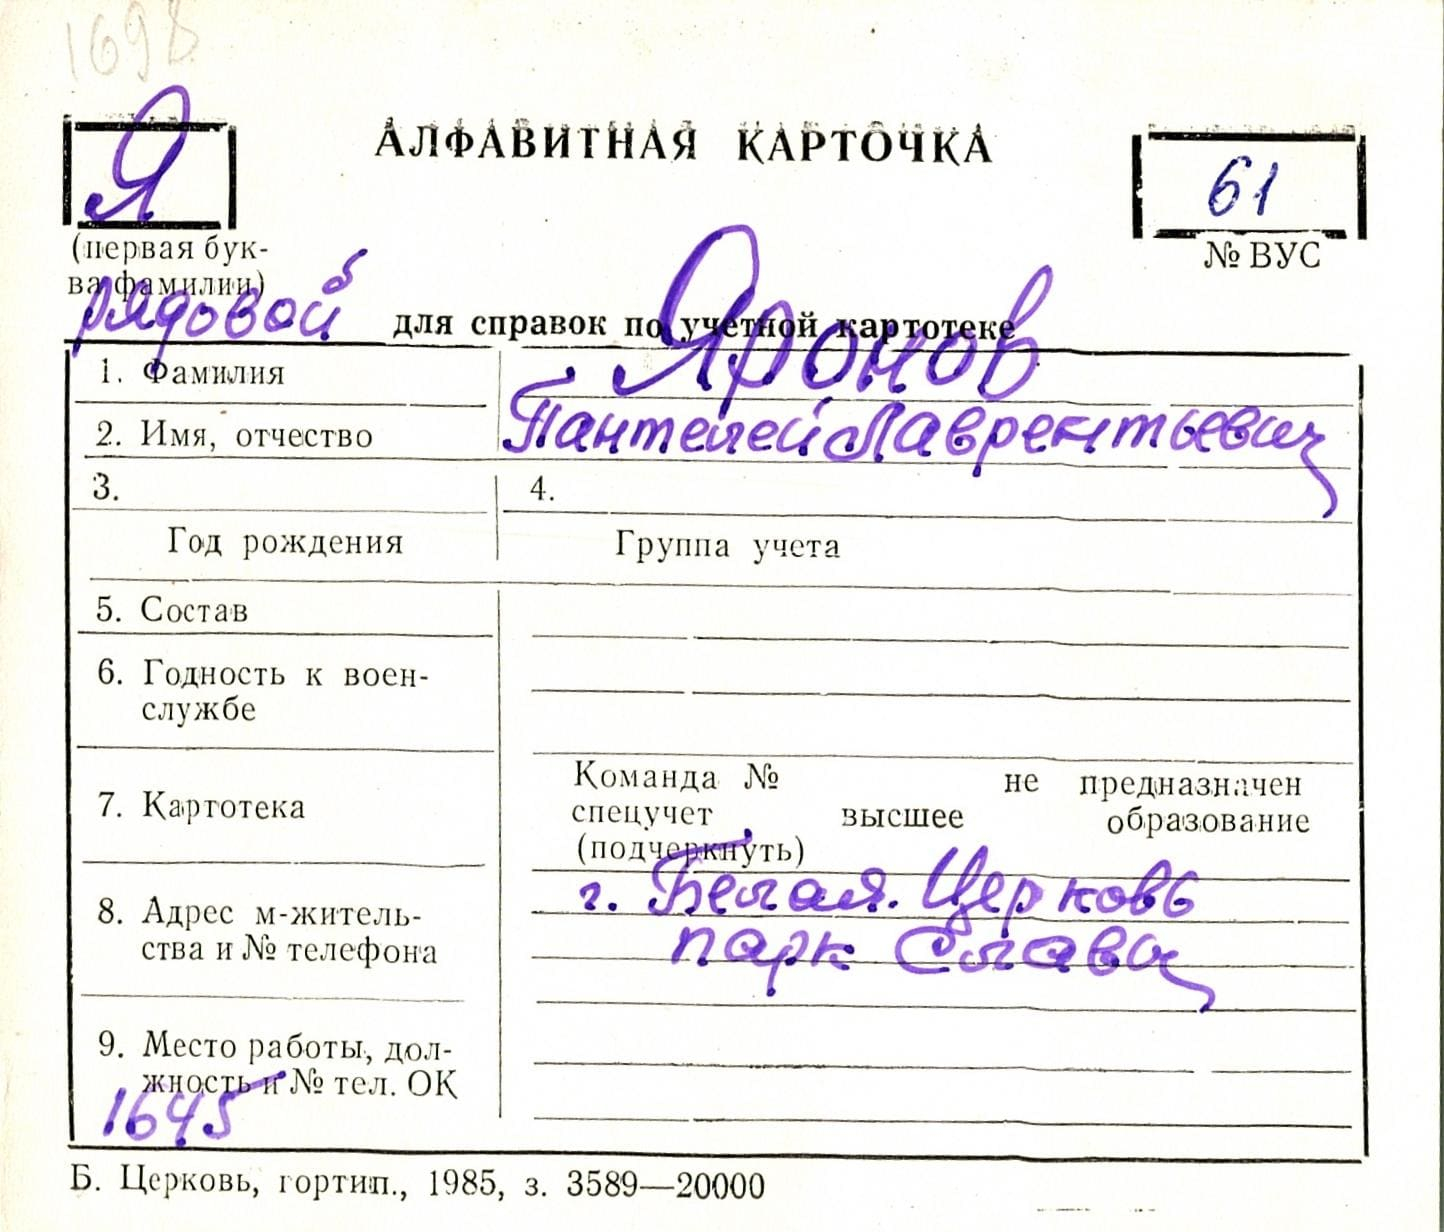 1698
Я
АЛФАВИТНАЯ КАРТОЧКА
61
(первая бук-
ва фамилии)
№ ВУС
рядовой
для справок по учетной картотеке
1. Фамилия
Яронов
2. Имя, отчество
Пантелей Лаврентьевич
3.
4.
Год рождения
Группа учета
5. Состав
6. Годность к воен-
службе
7. Картотека
Команда № не предназначен
спецучет высшее образование
(подчеркнуть)
8. Адрес м-житель-
ства и № телефона
г. Белая Церковь
парк Славы
9. Место работы, дол-
жность и № тел. ОК
1645
Б. Церковь, гортип., 1985, з. 3589—20000